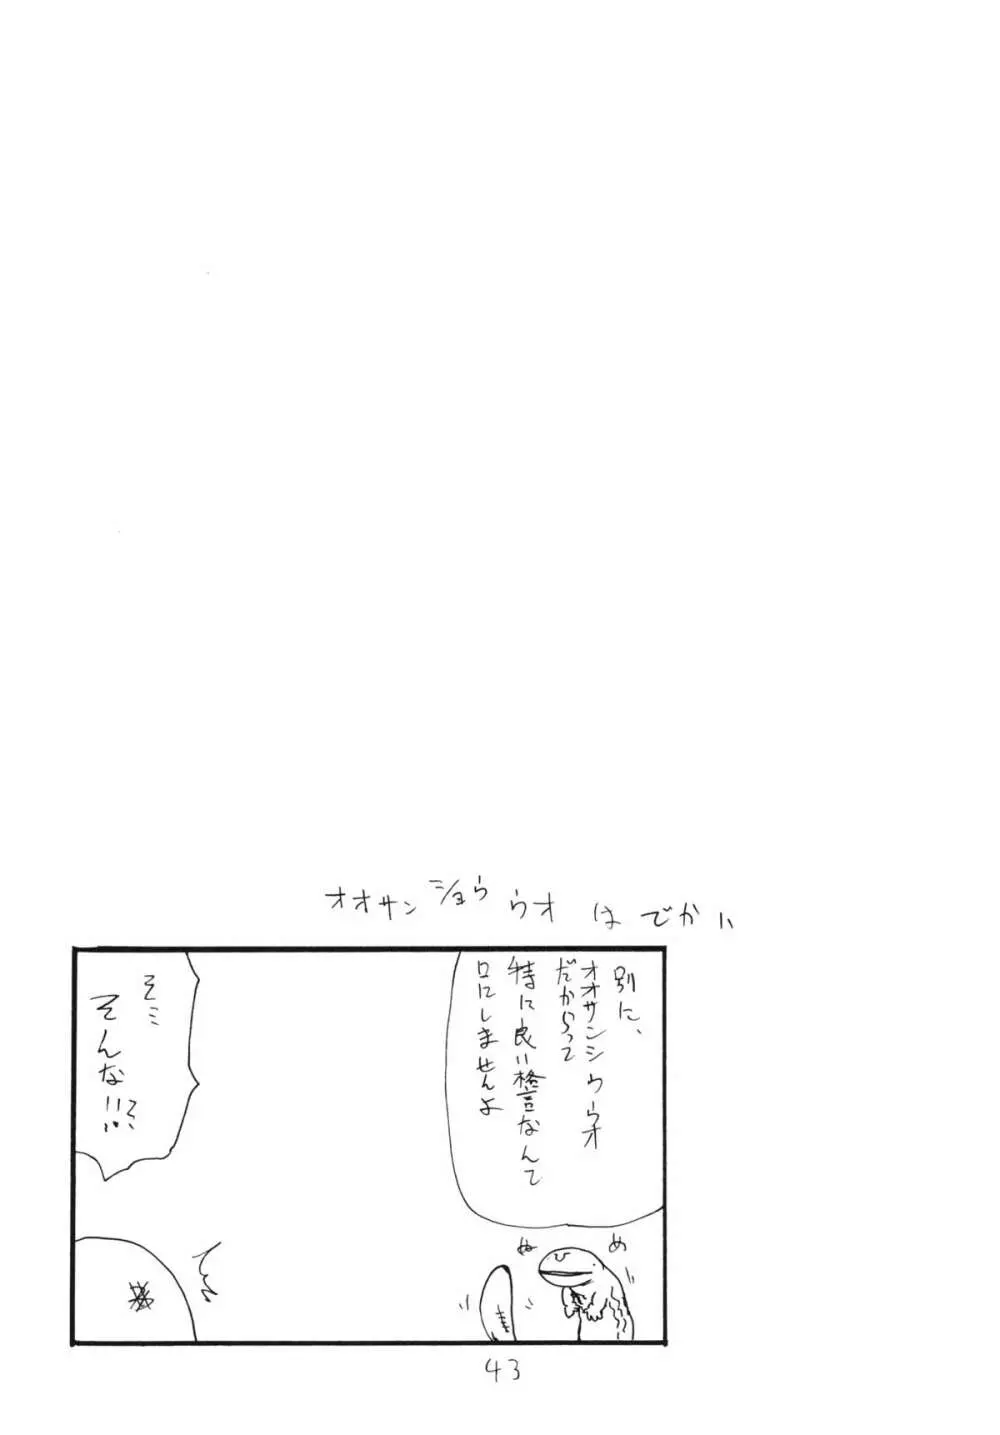 オオサンショウウオはでかい
別に、
オオサンショウウオ
だからって
特に良い格言なんて
口にしませんよ
ぬ
め
そミ
そんな!!?
43